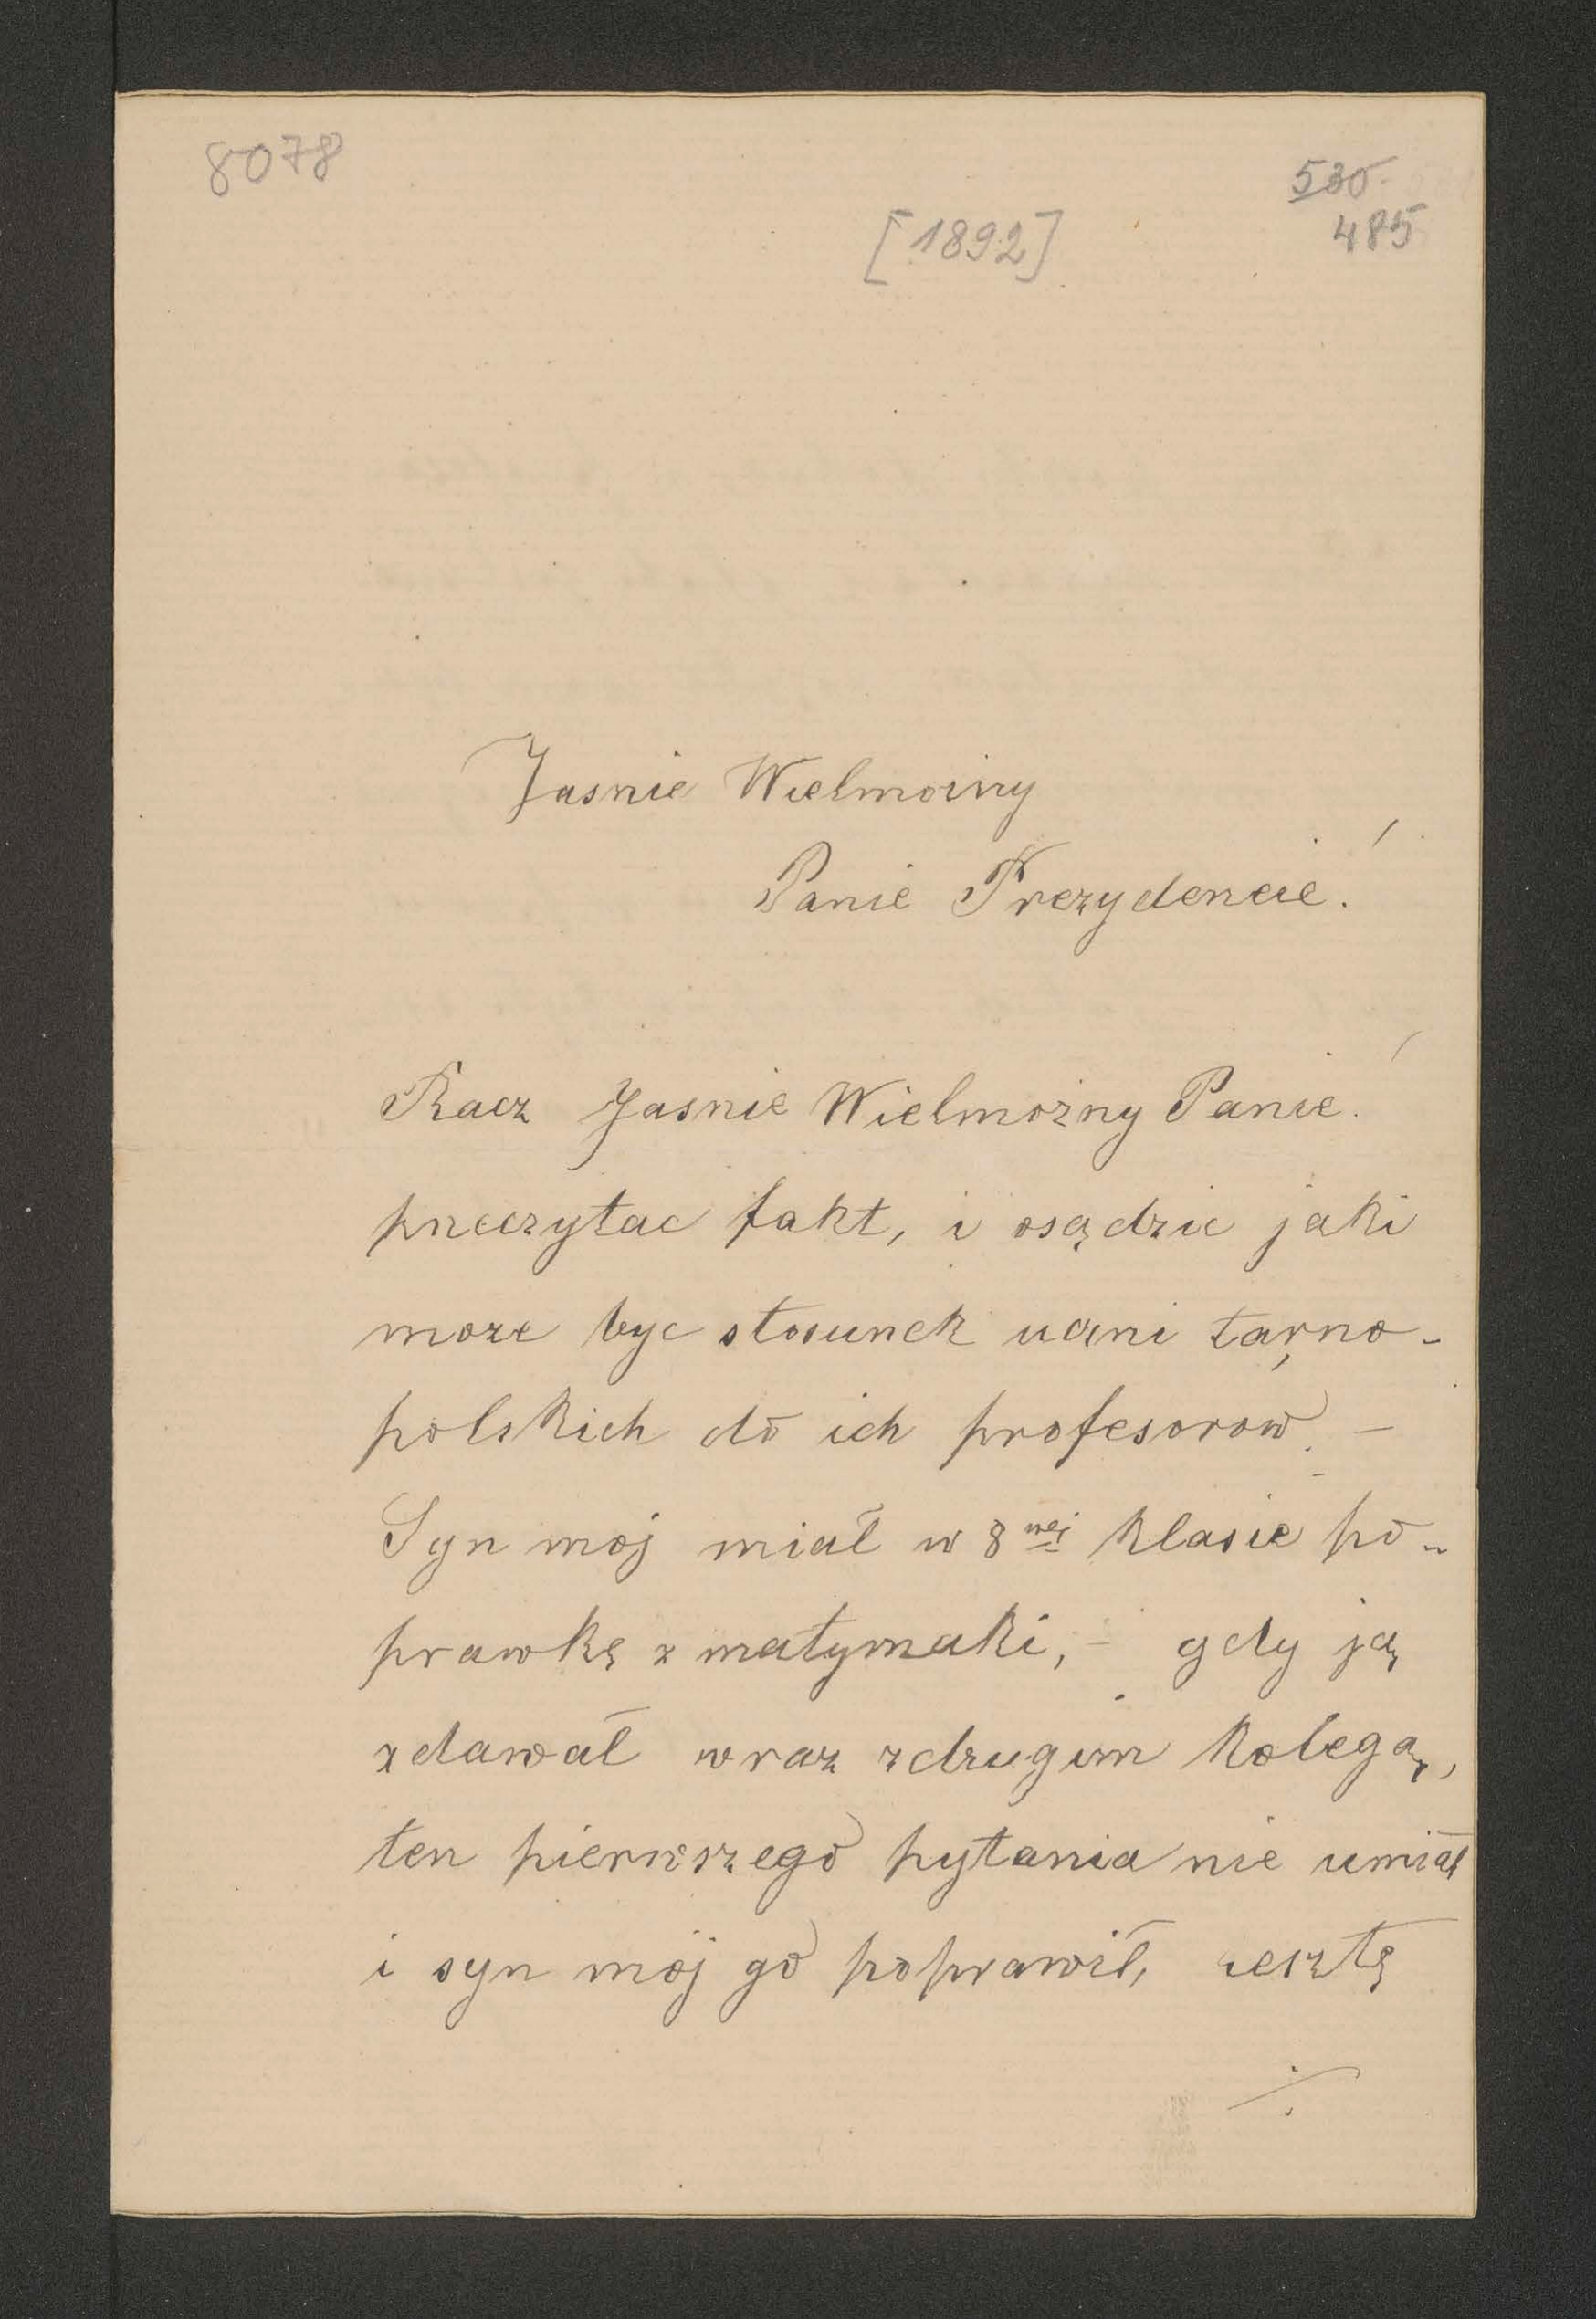 8078
530
[1892]
485
Jasnie Wielmożny
Panie Prezydencie!
Racz Jasnie Wielmożny Panie!
przeczytac fakt, i osądzic jaki
moze byc stosunek uczni tarno-
polskich do ich profesorow. -
Syn moj miał w 8mej klasie po-
prawkę z matymaki, - gdy ją
zdawał wraz zdrugim kolegą,
ten pierwszego pytania nie umiał
i syn mój go poprawił, resztę
./.